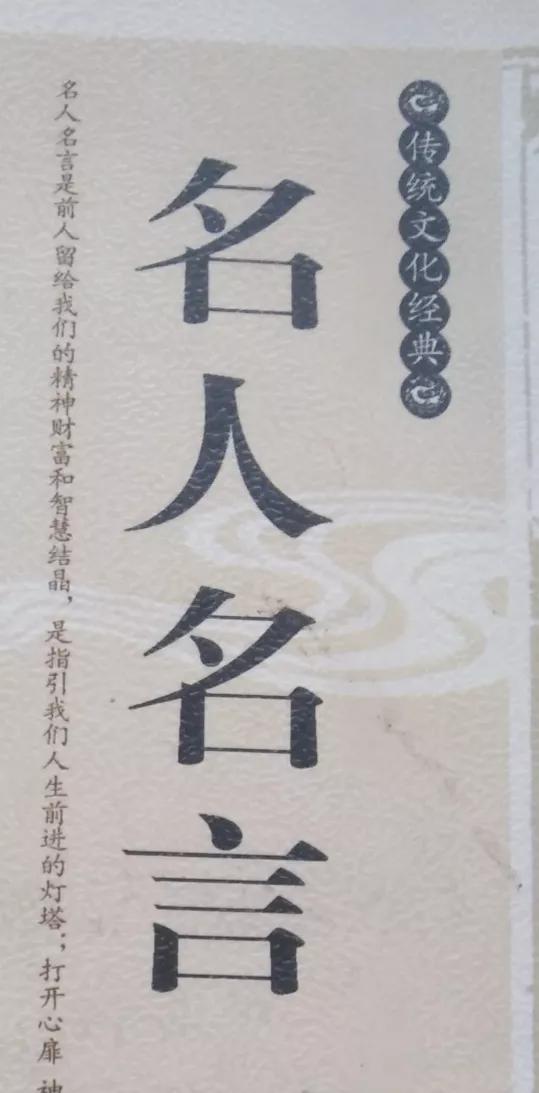 传统文化经典
名人名言
名人名言是前人留给我们的精神财富和智慧结晶，是指引我们人生前进的灯塔；打开心扉 神